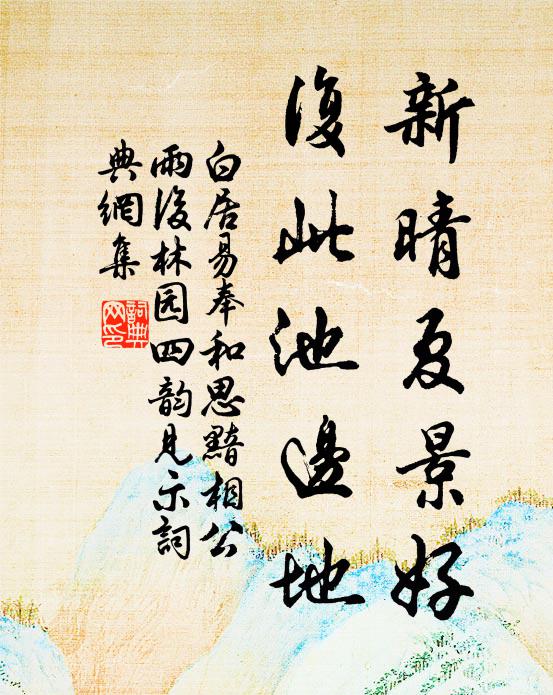 新晴夏景好
復此池邊地
白居易奉和思黯相公
雨後林园四韵見示詞
典網集
詞典
网印